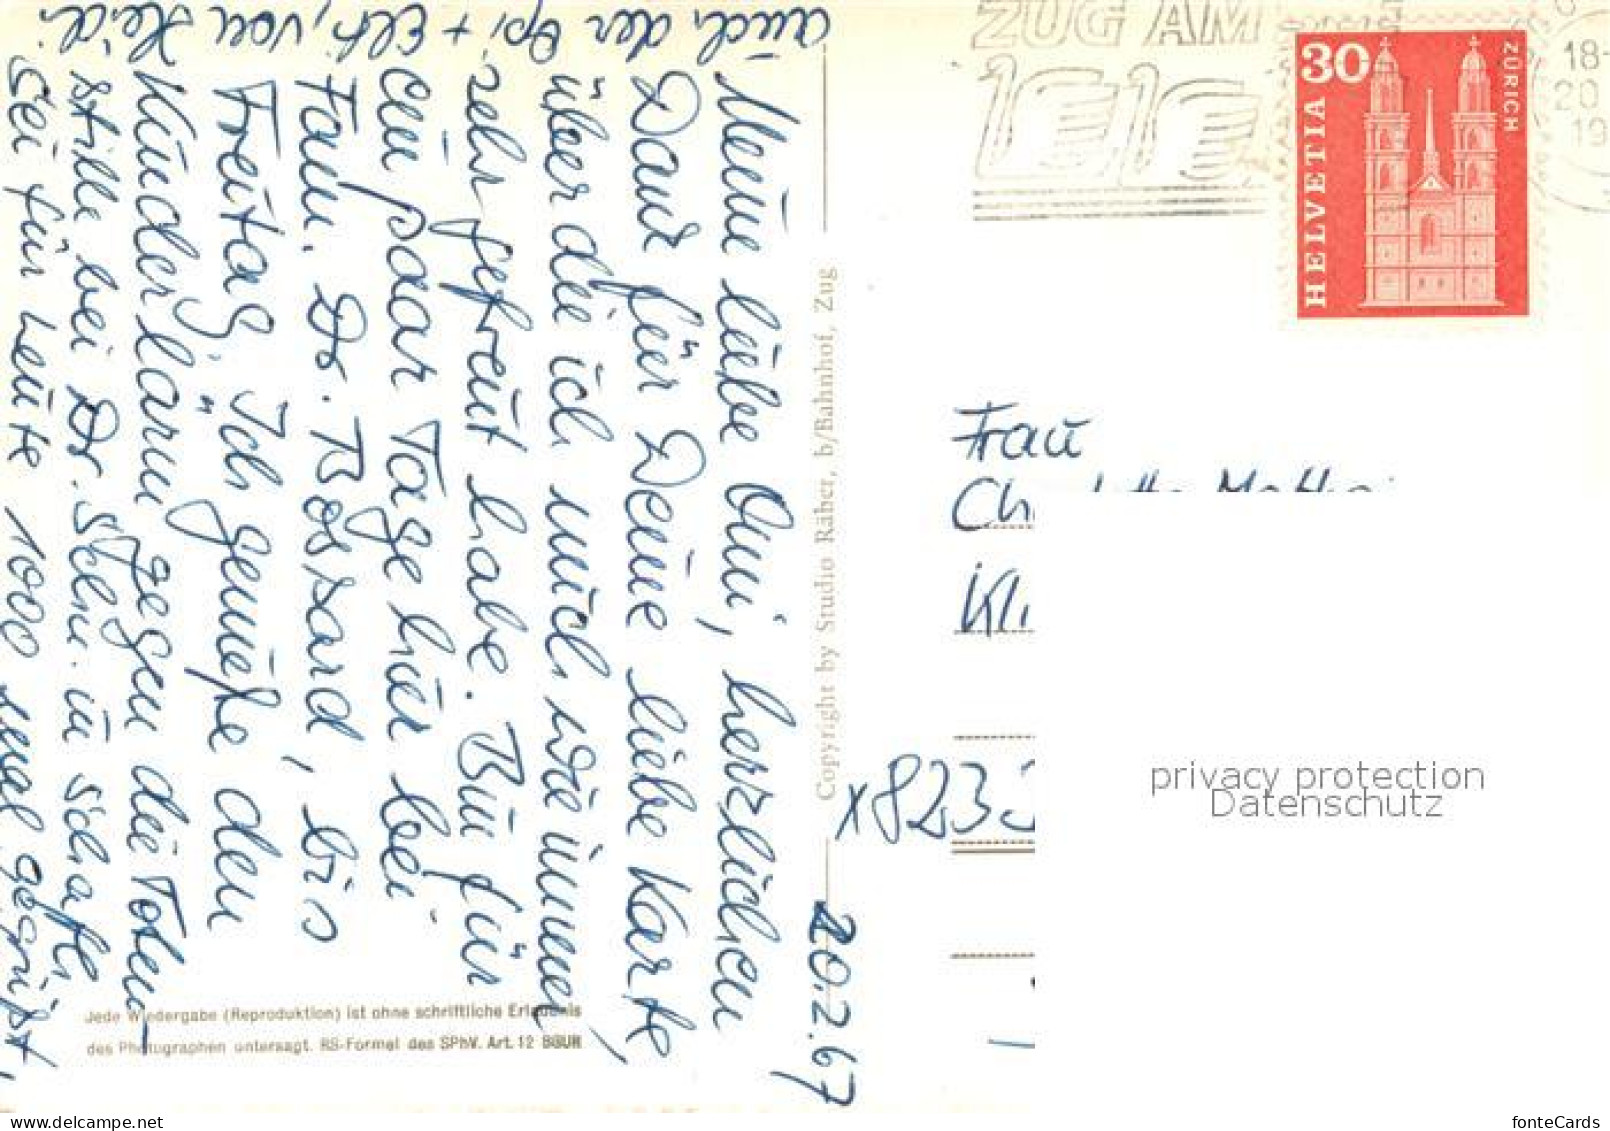 20.2.67
Meine liebe Omi, herzlichen
Dank für Deine liebe Karte,
über die ich mich wie immer
sehr gefreut habe. Bin für
ein paar Tage hier bei
Fam. Dr. Bossard, bis
Freitag. Ich genieße den
Kinderlärm gegen die Toten-
stille bei Dr. Schn. in Schaffh.
Sei für heute 1000 mal gegrüßt,
auch der Opi + Elfi, von Heidi.
Copyright by Studio Räber, b/Bahnhof, Zug
Jede Wiedergabe (Reproduktion) ist ohne schriftliche Erlaubnis
des Photographen untersagt. RS-Formel des SPhV. Art. 12 BGUR
ZUG AM
18-
20
19
30
HELVETIA
ZÜRICH
Frau
Ch
Kl
x8233
privacy protection
Datenschutz
fonteCards